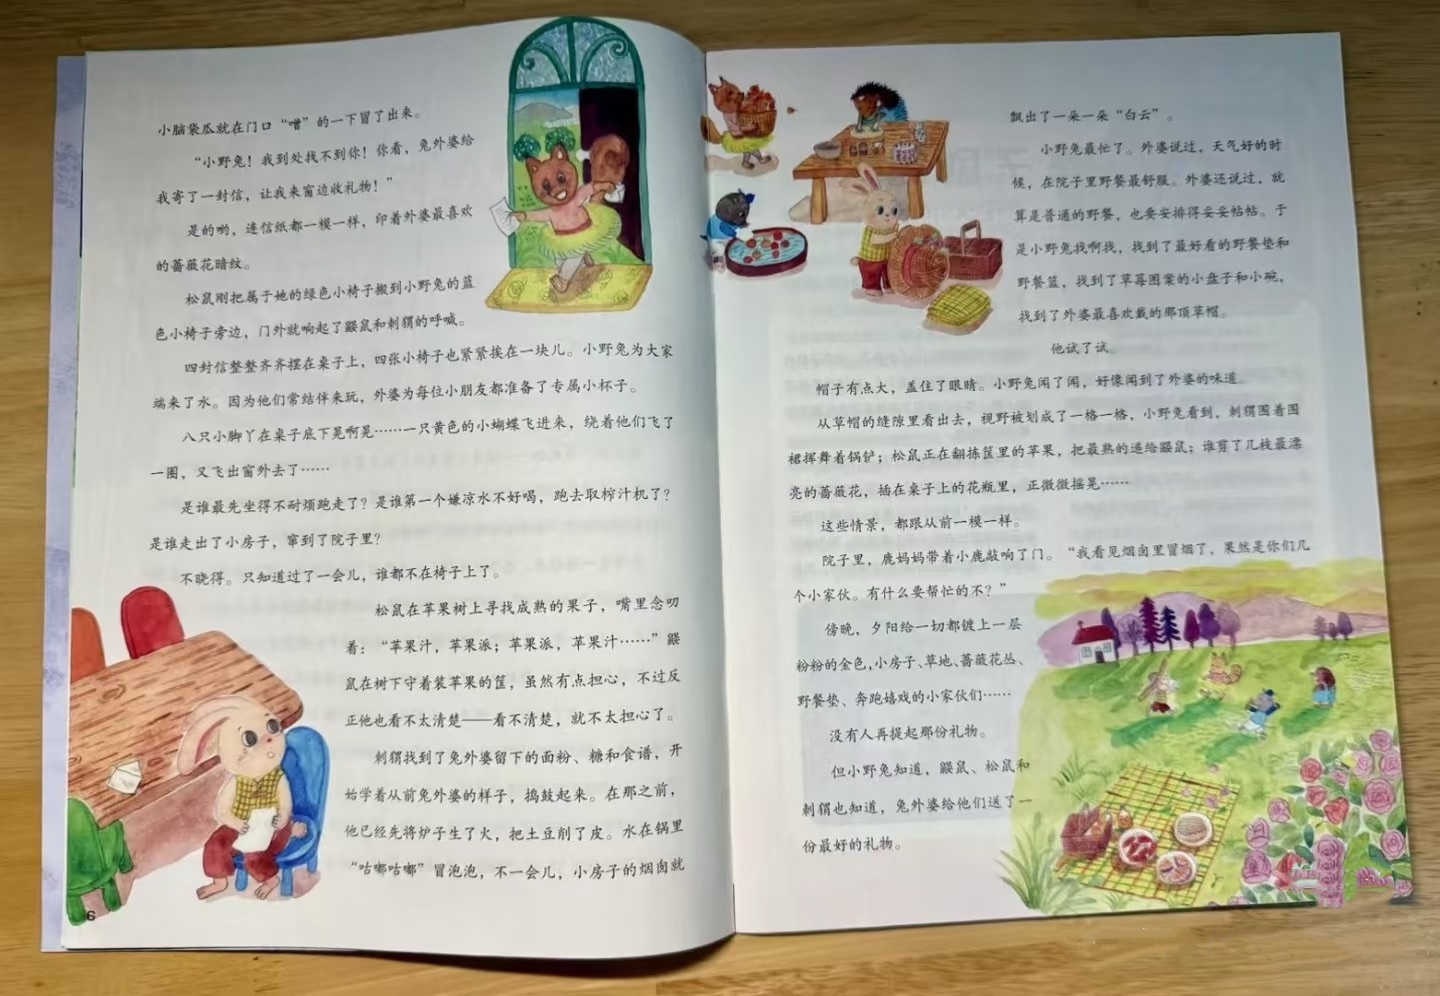 小脑袋瓜就在门口“噌”的一下冒了出来。
“小野兔！我到处找不到你！你看，兔外婆给
我寄了一封信，让我来窗边收礼物！”
是的哟，连信纸都一模一样，印着外婆最喜欢
的蔷薇花暗纹。
松鼠刚把属于她的绿色小椅子搬到小野兔的蓝
色小椅子旁边，门外就响起了鼹鼠和刺猬的呼喊。
四封信整整齐齐摆在桌子上，四张小椅子也紧紧挨在一块儿。小野兔为大家
端来了水。因为他们常结伴来玩，外婆为每位小朋友都准备了专属小杯子。
八只小脚丫在桌子底下晃啊晃……一只黄色的小蝴蝶飞进来，绕着他们飞了
一圈，又飞出窗外去了……
是谁最先坐得不耐烦跑走了？是谁第一个嫌凉水不好喝，跑去取榨汁机了？
是谁走出了小房子，窜到了院子里？
不晓得。只知道过了一会儿，谁都不在椅子上了。
松鼠在苹果树上寻找成熟的果子，嘴里念叨
着：“苹果汁，苹果派；苹果派，苹果汁……”鼹
鼠在树下守着装苹果的筐，虽然有点担心，不过反
正他也看不太清楚——看不清楚，就不太担心了。
刺猬找到了兔外婆留下的面粉、糖和食谱，开
始学着从前兔外婆的样子，捣鼓起来。在那之前，
他已经先将炉子生了火，把土豆削了皮。水在锅里
“咕嘟咕嘟”冒泡泡，不一会儿，小房子的烟囱就
6
飘出了一朵一朵“白云”。
小野兔最忙了。外婆说过，天气好的时
候，在院子里野餐最舒服。外婆还说过，就
算是普通的野餐，也要安排得妥妥帖帖。于
是小野兔找啊找，找到了最好看的野餐垫和
野餐篮，找到了草莓图案的小盘子和小碗，
找到了外婆最喜欢戴的那顶草帽。
他试了试。
帽子有点大，盖住了眼睛。小野兔闻了闻，好像闻到了外婆的味道。
从草帽的缝隙里看出去，视野被划成了一格一格，小野兔看到，刺猬围着围
裙挥舞着锅铲；松鼠正在翻拣筐里的苹果，把最熟的递给鼹鼠；谁剪了几枝最漂
亮的蔷薇花，插在桌子上的花瓶里，正微微摇晃……
这些情景，都跟从前一模一样。
院子里，鹿妈妈带着小鹿敲响了门。“我看见烟囱里冒烟了，果然是你们几
个小家伙。有什么要帮忙的不？”
傍晚，夕阳给一切都镀上一层
粉粉的金色，小房子、草地、蔷薇花丛、
野餐垫、奔跑嬉戏的小家伙们……
没有人再提起那份礼物。
但小野兔知道，鼹鼠、松鼠和
刺猬也知道，兔外婆给他们送了一
份最好的礼物。